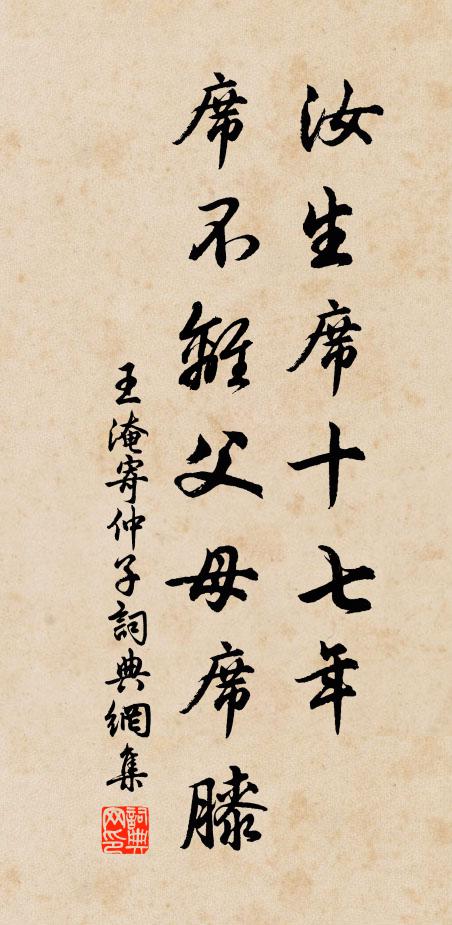 汝生席十七年
席不離父母席膝
王淹寄仲子詞典網集
詞典網印